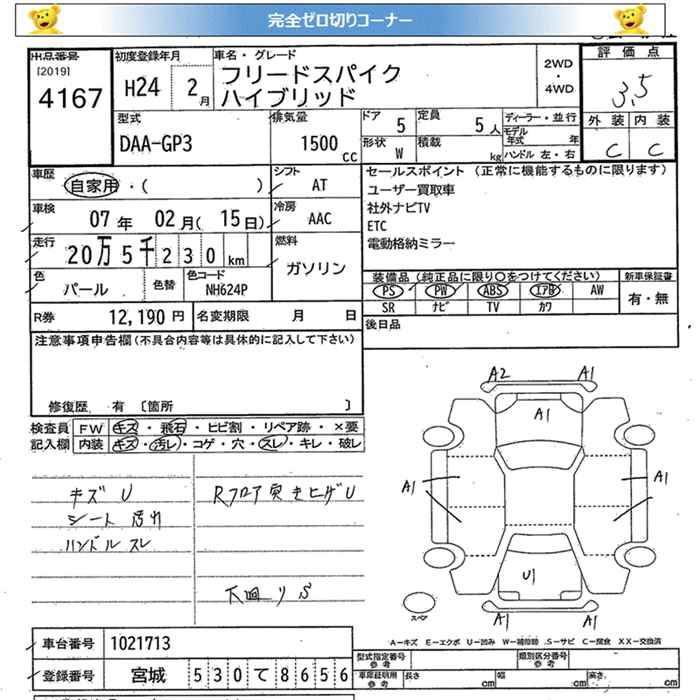 完全ゼロ切りコーナー
出品番号
[2019]
4167
初度登録年月
H24 2月
車名・グレード
フリードスパイク
ハイブリッド
2WD
・
4WD
評価点
3.5
外装 内装
C C
型式
DAA-GP3
排気量
1500 cc
ドア 5
定員 5人
形状 W
積載 kg
ディーラー・並行
モデル年式 年
ハンドル 左・右
車歴
自家用・( )
シフト
AT
車検
07年 02月( 15日)
冷房
AAC
走行
20万5千230km
燃料
ガソリン
色
パール
色替
色コード
NH624P
R券 12,190円
名変期限 月 日
セールスポイント (正常に機能するものに限ります)
ユーザー買取車
社外ナビTV
ETC
電動格納ミラー
装備品 (純正品に限り○をつけてください)
PS PW ABS エアB AW
SR ナビ TV カワ
新車保証書
有・無
後日品
注意事項申告欄(不具合内容等は具体的に記入して下さい)
修復歴 有 〔箇所 〕
検査員
記入欄
FW キズ・飛石・ヒビ割・リペア跡・×要
内装 キズ・汚レ・コゲ・穴・スレ・キレ・破レ
キズ U
シート 汚れ
ハンドル スレ
Rフロア突き上げU
下廻り S
A2 A1
A1
A1 A1
U1
A1 A1
スペア
A=キズ E=エクボ U=凹み W=補修跡 S=サビ C=腐食 XX=交換済
車台番号 1021713
登録番号 宮城 530 て 8656
型式指定番号
参考
類別区分番号
参考
車庫証明用
参考
長さ cm
幅 cm
高さ cm